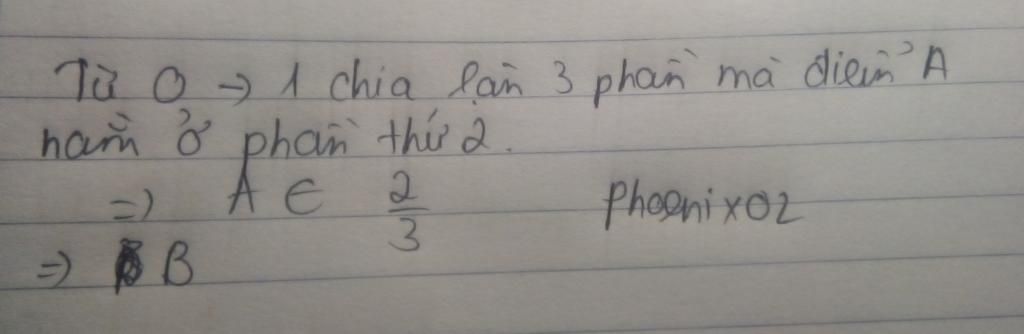 Từ 0 → 1 chia làm 3 phần mà điểm A
nằm ở phần thứ 2.
=> A ∈ 2/3
Phoenix02
=> B